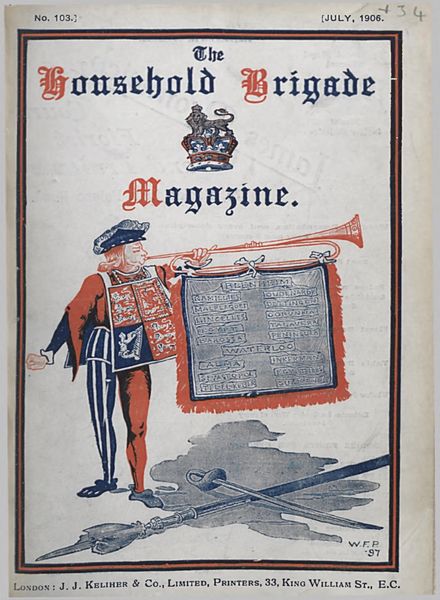 No. 103.] [JULY, 1906. +34
The
Household Brigade
Magazine.
BLENHEIM
RAMILLIES OUDENARDE
MALPLAQUET DETTINGEN
LINCELLES
TALAVERA
BAROSSA PENINSULA
WATERLOO
ALMA INKERMAN
TEL-EL-KEBIR
W.F.P.
'97
LONDON: J. J. KELIHER & CO., LIMITED, PRINTERS, 33, KING WILLIAM ST., E.C.